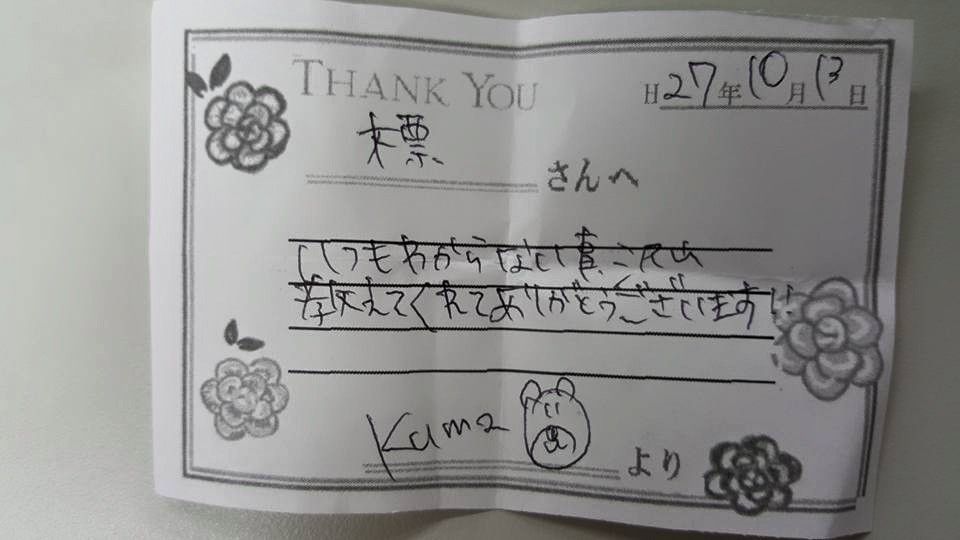 THANK YOU
H27年10月13日
標 さんへ
いつもわからない
教えてくれてありがとうございます
Kama より